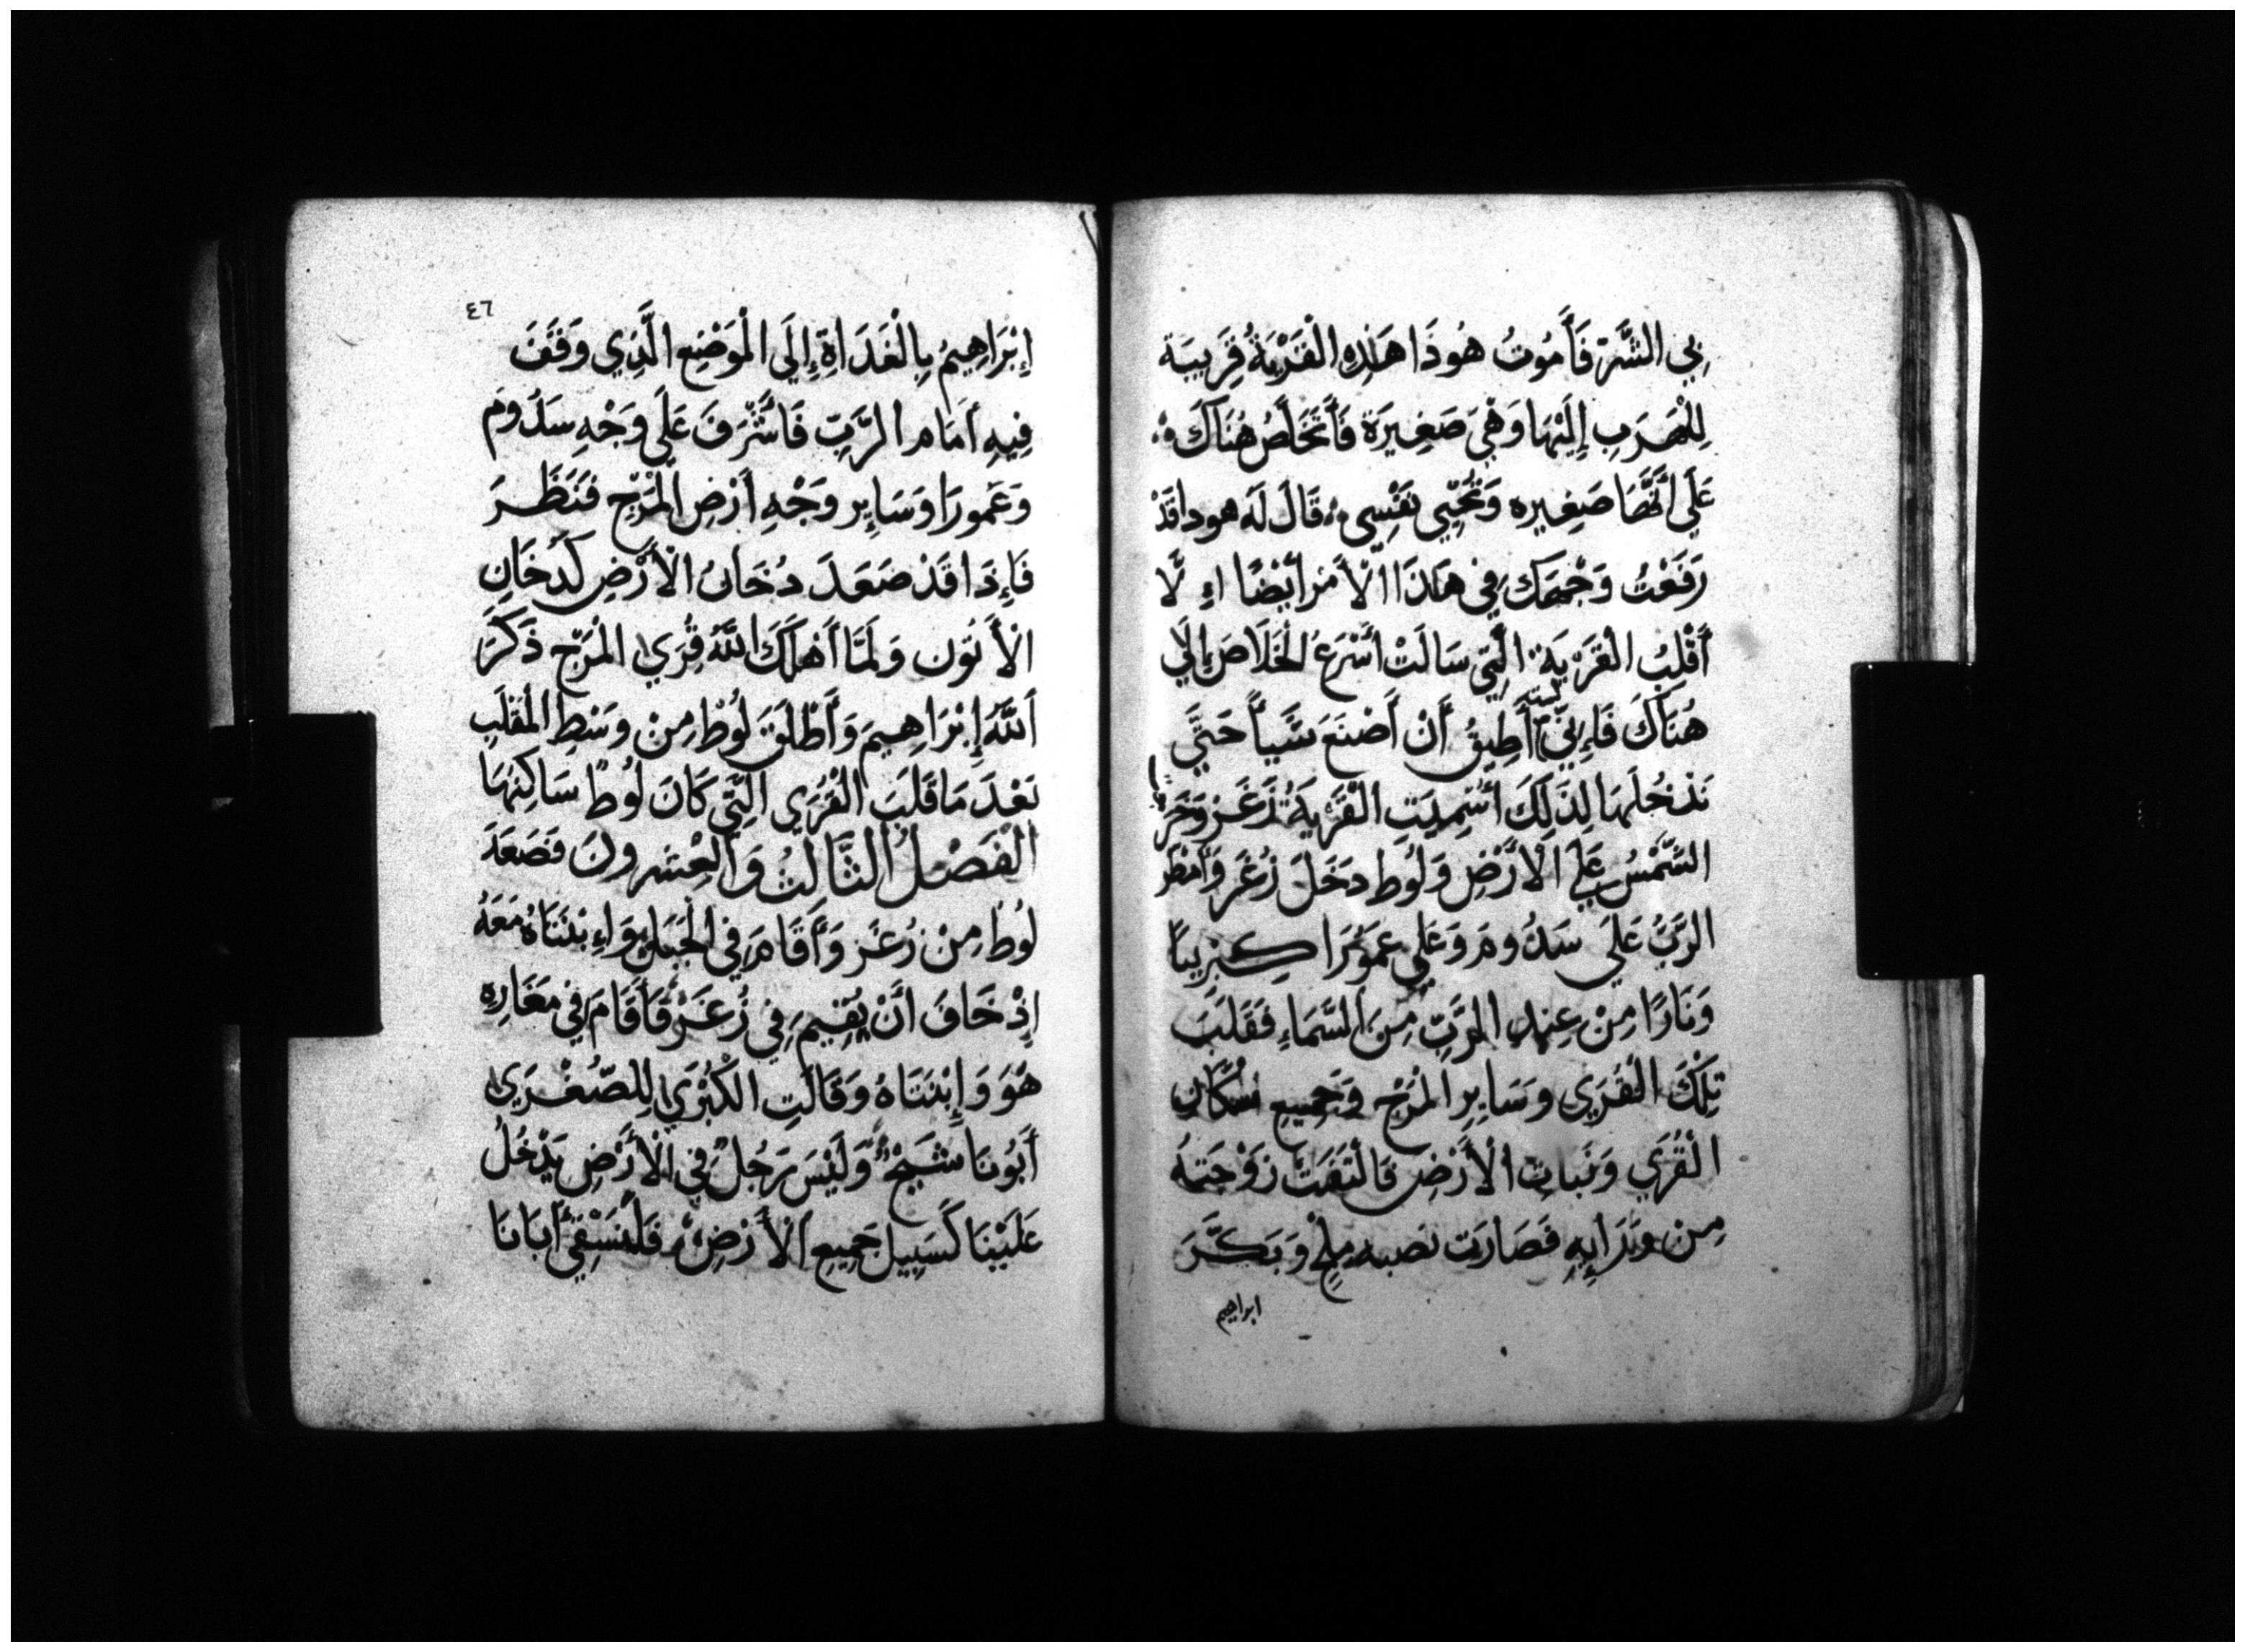 بِي الشَّرّ فَأَمُوتُ هُوذَا هَذِهِ الْقَرْيَةُ قَرِيبَة
لِلْهَرَبِ إِلَيْهَا وَهْيَ صَغِيرَة فَأَتَخَلَّصُ هُنَاكَ
عَلَي أَنَّهَا صَغِيره وَتُحْيِي نَفْسِي قَالَ لَه هودا قَدْ
رَفَعْتُ وَجْهَكَ فِي هَذَا الْأَمْرِ أَيْضًا اءِ لَّا
أَقْلِبُ الْقَرْيَة الَّتِي سَالَتْ أَسْرَعُ الْخَلَاصَ إِلَي
هُنَاكَ فَإِنِّي لست أُطِيقُ أَنْ أَصْنَعَ شَيأً حَتَّي
تَدْخُلَهَا لِذَلِكَ أُسْمِيَتِ الْقَرْيَةُ زُغَر وَخَرَجَ
الشَّمْسُ عَلَي الْأَرْضِ وَلُوط دَخَلَ زُغَر وَأَمْطَر
الرَّبُّ عَلَي سَدُومَ وَعَلَي عَمُورَا كِبْرِيتًا
وَنَارًا مِنْ عِنْدِ الرَّبِّ مِنَ السَّمَاءِ فَقَلَبَ
تِلْكَ الْقُرَي وَسَايِرِ الْمَرْجِ وَجَمِيعِ سُكَّانِ
الْقُرَي وَنَبَاتِ الْأَرْضِ فَالْتَفَتَتْ زَوْجَتهُ
مِنْ وَرَايِهِ فَصَارَت نصبه مِلْح وَبَكَّرَ
ابراهيم
٤٦
إِبْرَاهِيمُ بِالْغَدَاةِ إِلَي الْمَوْضِع الَّذِي وَقَفَ
فِيهِ أَمَام الرَّبِّ فَأَشْرَفَ عَلَي وَجْهِ سَدُومَ
وَعَمورَا وَسَايِر وَجْهِ أَرْضِ الْمَرْجِ فَنَظَرَ
فَإِذَا قَدْ صَعَدَ دُخَانُ الْأَرْضِ كَدُخَانِ
الْأَتُون وَلَمَّا أَهْلَكَ اللَّهُ قُرَي الْمَرْجِ ذَكَرَ
اَللَّهُ إِبْرَاهِيمَ وَأَطْلَقَ لُوط مِنْ وَسْطِ الْمُقْلَب
بَعْدَ مَا قَلَبَ الْقُرَي الَّتِي كَانَ لُوط سَاكِنهَا
الْفَصْلُ الثَّالِثُ وَالْعِشرونَ فَصَعَدَ
لُوط مِنْ زُغَر وَأَقَامَ فِي الْجَبَلِ وَاءِبْنَتَاهُ مَعَهُ
إِذْ خَافَ أَنْ يُقِيمَ فِي زُغَرْ فَأَقَامَ فِي مَغَارِه
هُوَ وَإِبْنَتَاهُ وَقَالَتِ الْكُبْرَي لِلصُّغْرَي
أَبُونَا شَيْخٌ وَلَيْسَ رَجُلٌ فِي الْأَرْضِ يَدْخُلُ
عَلَيْنَا كَسَبِيل جَمِيعِ الْأَرْضِ فَلْنُسْقِي أَبَانَا